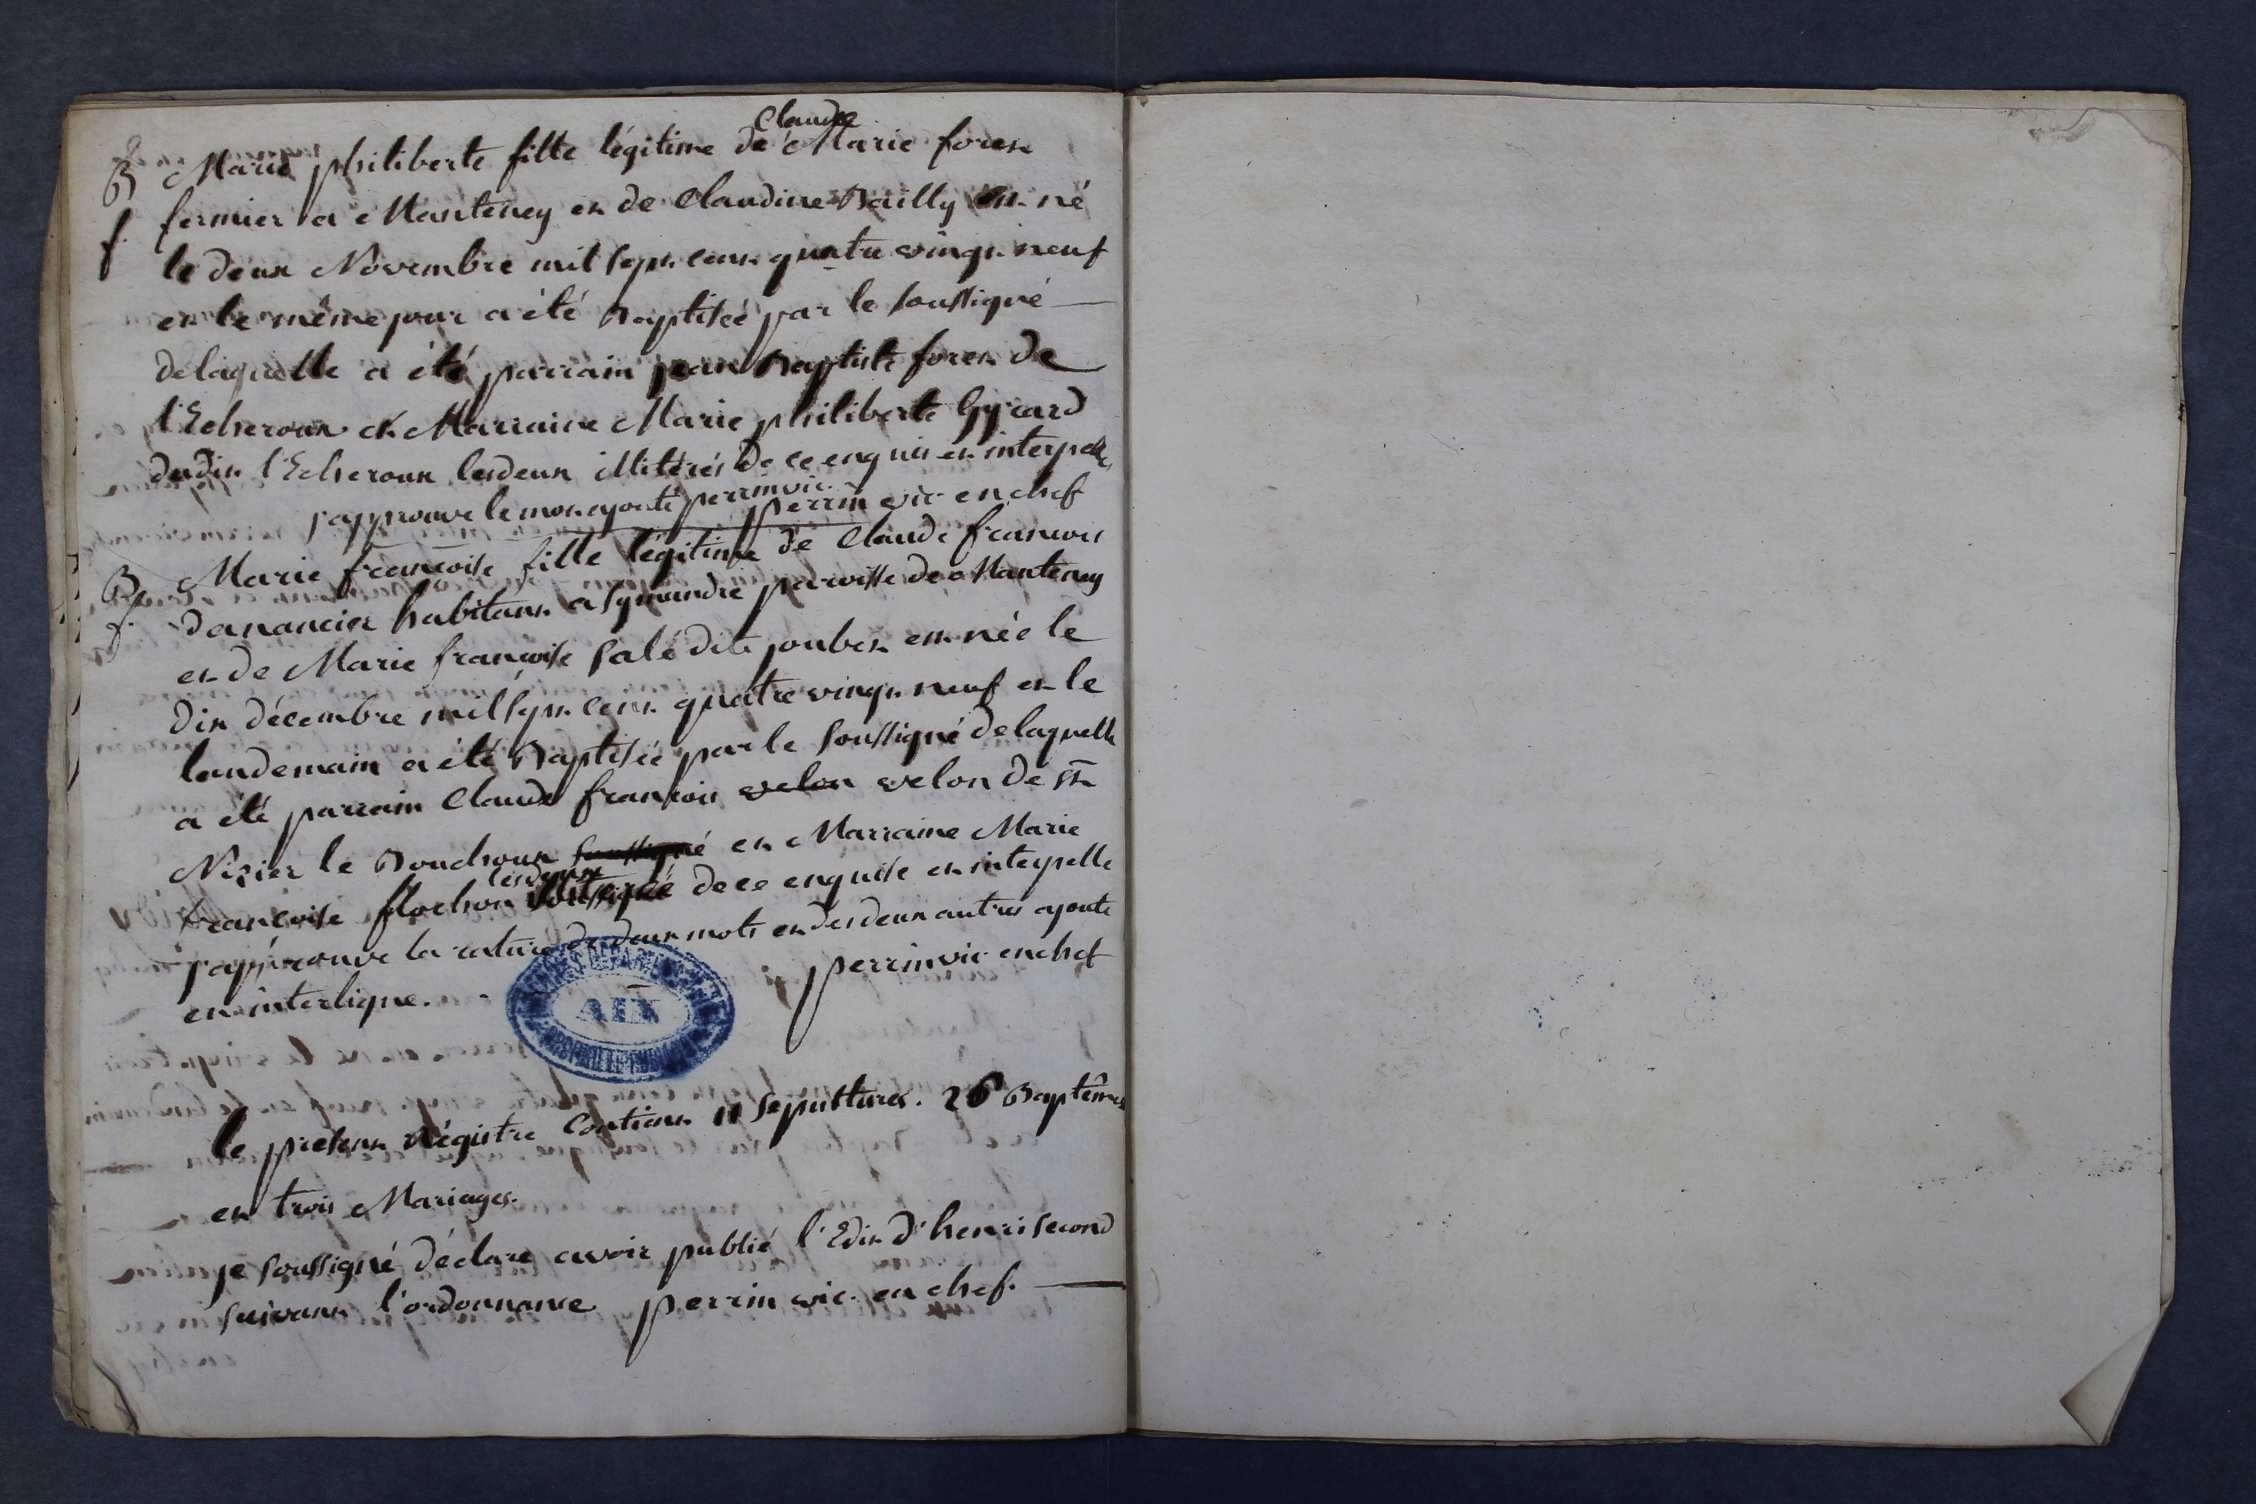 Claude
B Marie philiberte fille légitime de Marie foret
f. fermier a Manteney et de Claudine Bailly est né
le deux Novembre mil sept cent quatre vingt neuf
et le même jour a été Baptisée par le soussigné
de laquelle a été parrain jean Baptiste foret de
l'Echeroux et Marraine Marie philiberte Gyrard
dudit l'Echeroux lesdeux illitérés de ce enquis et interpellé
j'approuve le mot ajouté perrin vic. perrin vic. en chef
B Marie francoise fille légitime de Claude francois
f. danancier habitant a lymandre paroisse de Manteney
et de Marie francoise salé dit joubet est née le
dix décembre mil sept cent quatre vingt neuf et le
landemain a été Baptisée par le soussigné de laquelle
a été parrain Claude francois velon velon de st
Nizier le Bouchoux soussigné et Marraine Marie
lesdeux
francoise flochon illiteré de ce enquise et interpelle
j'approuve la rature de deux mots et des deux autres ajouté
en interligne. perrin vic en chef
AIN
le present Régistre Contient 11 sepultures. 26 Baptêmes
et trois Mariages.
je soussigné déclare avoir publié l'Edit d'henri second
suivant l'ordonnance perrin vic. en chef.